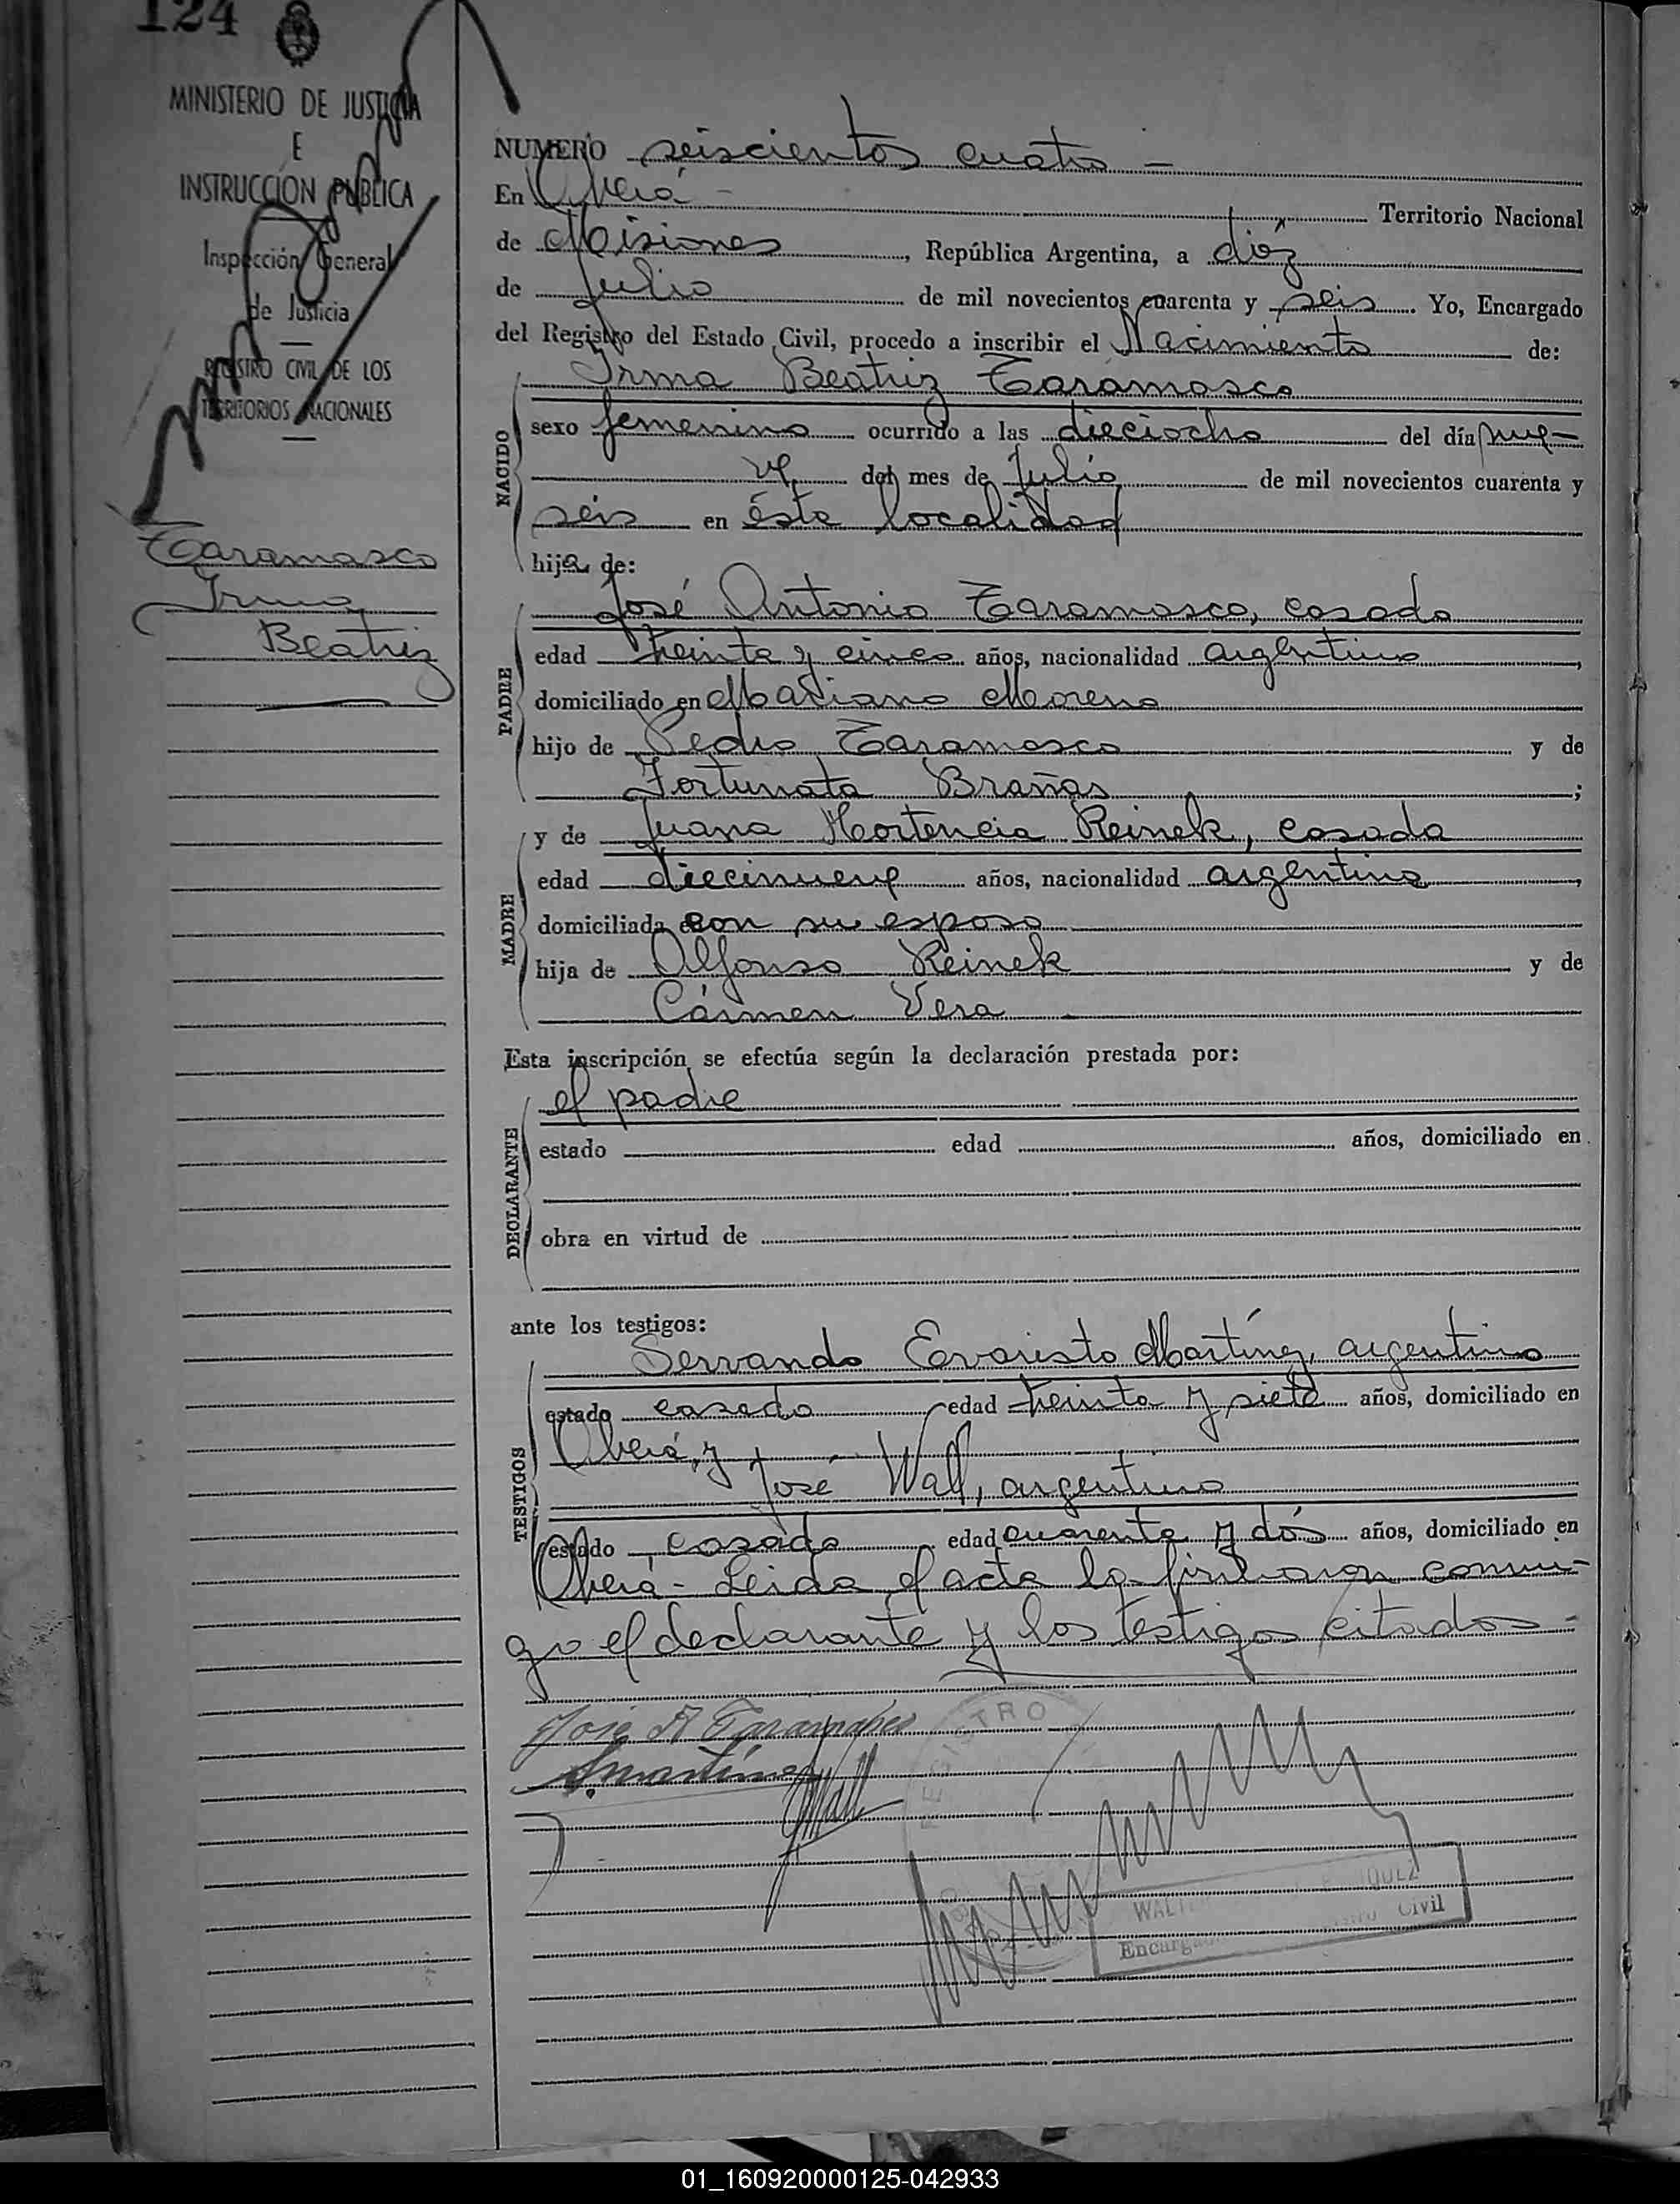 124
MINISTERIO DE JUSTICIA
E
INSTRUCCION PUBLICA
Inspección General
de Justicia
REGISTRO CIVIL DE LOS
TERRITORIOS NACIONALES
Taramasco
Irma
Beatriz
NUMERO seiscientos cuatro -
En Oberá - Territorio Nacional
de Misiones, República Argentina, a diéz
de Julio de mil novecientos cuarenta y seis. Yo, Encargado
del Registro del Estado Civil, procedo a inscribir el Nacimiento de:
Irma Beatriz Taramasco
NACIDO
sexo femenino ocurrido a las dieciocho del día nue-
ve del mes de Julio de mil novecientos cuarenta y
seis en ésta localidad
hija de:
José Antonio Taramasco, casado
PADRE
edad treinta y cinco años, nacionalidad argentino,
domiciliado en Mariano Moreno
hijo de Pedro Taramasco y de
Fortunata Brañas;
y de Juana Hortencia Reinek, casada
MADRE
edad diecinueve años, nacionalidad argentina,
domiciliada con su esposo
hija de Alfonso Reinek y de
Cármen Vera
Esta inscripción se efectúa según la declaración prestada por:
el padre
DECLARANTE
estado edad años, domiciliado en
obra en virtud de
ante los testigos:
Servando Evaristo Martínez, argentino
TESTIGOS
estado casado edad treinta y siete años, domiciliado en
Oberá, y
José Wall, argentino
estado, casado edad cuarenta y dós años, domiciliado en
Oberá - Leida el acta la firmaron conmi-
go el declarante y los testigos citados -
José A Taramasco
S. Martínez
JWall
REGISTRO
WALT QUEZ
Encarg Civil
01_160920000125-042933